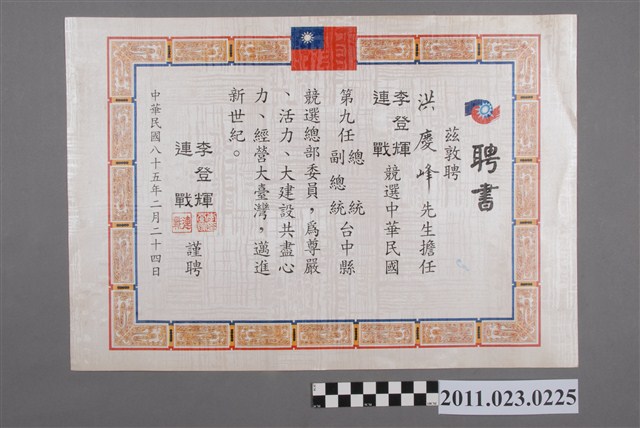 聘書
茲敦聘
洪慶峰先生擔任
李登輝
連戰
競選中華民國
第九任
總統
副總統
台中縣
競選總部委員，為尊嚴
、活力、大建設共盡心
力、經營大臺灣，邁進
新世紀。
李登輝
連戰
謹聘
中華民國八十五年二月二十四日
2011.023.0225